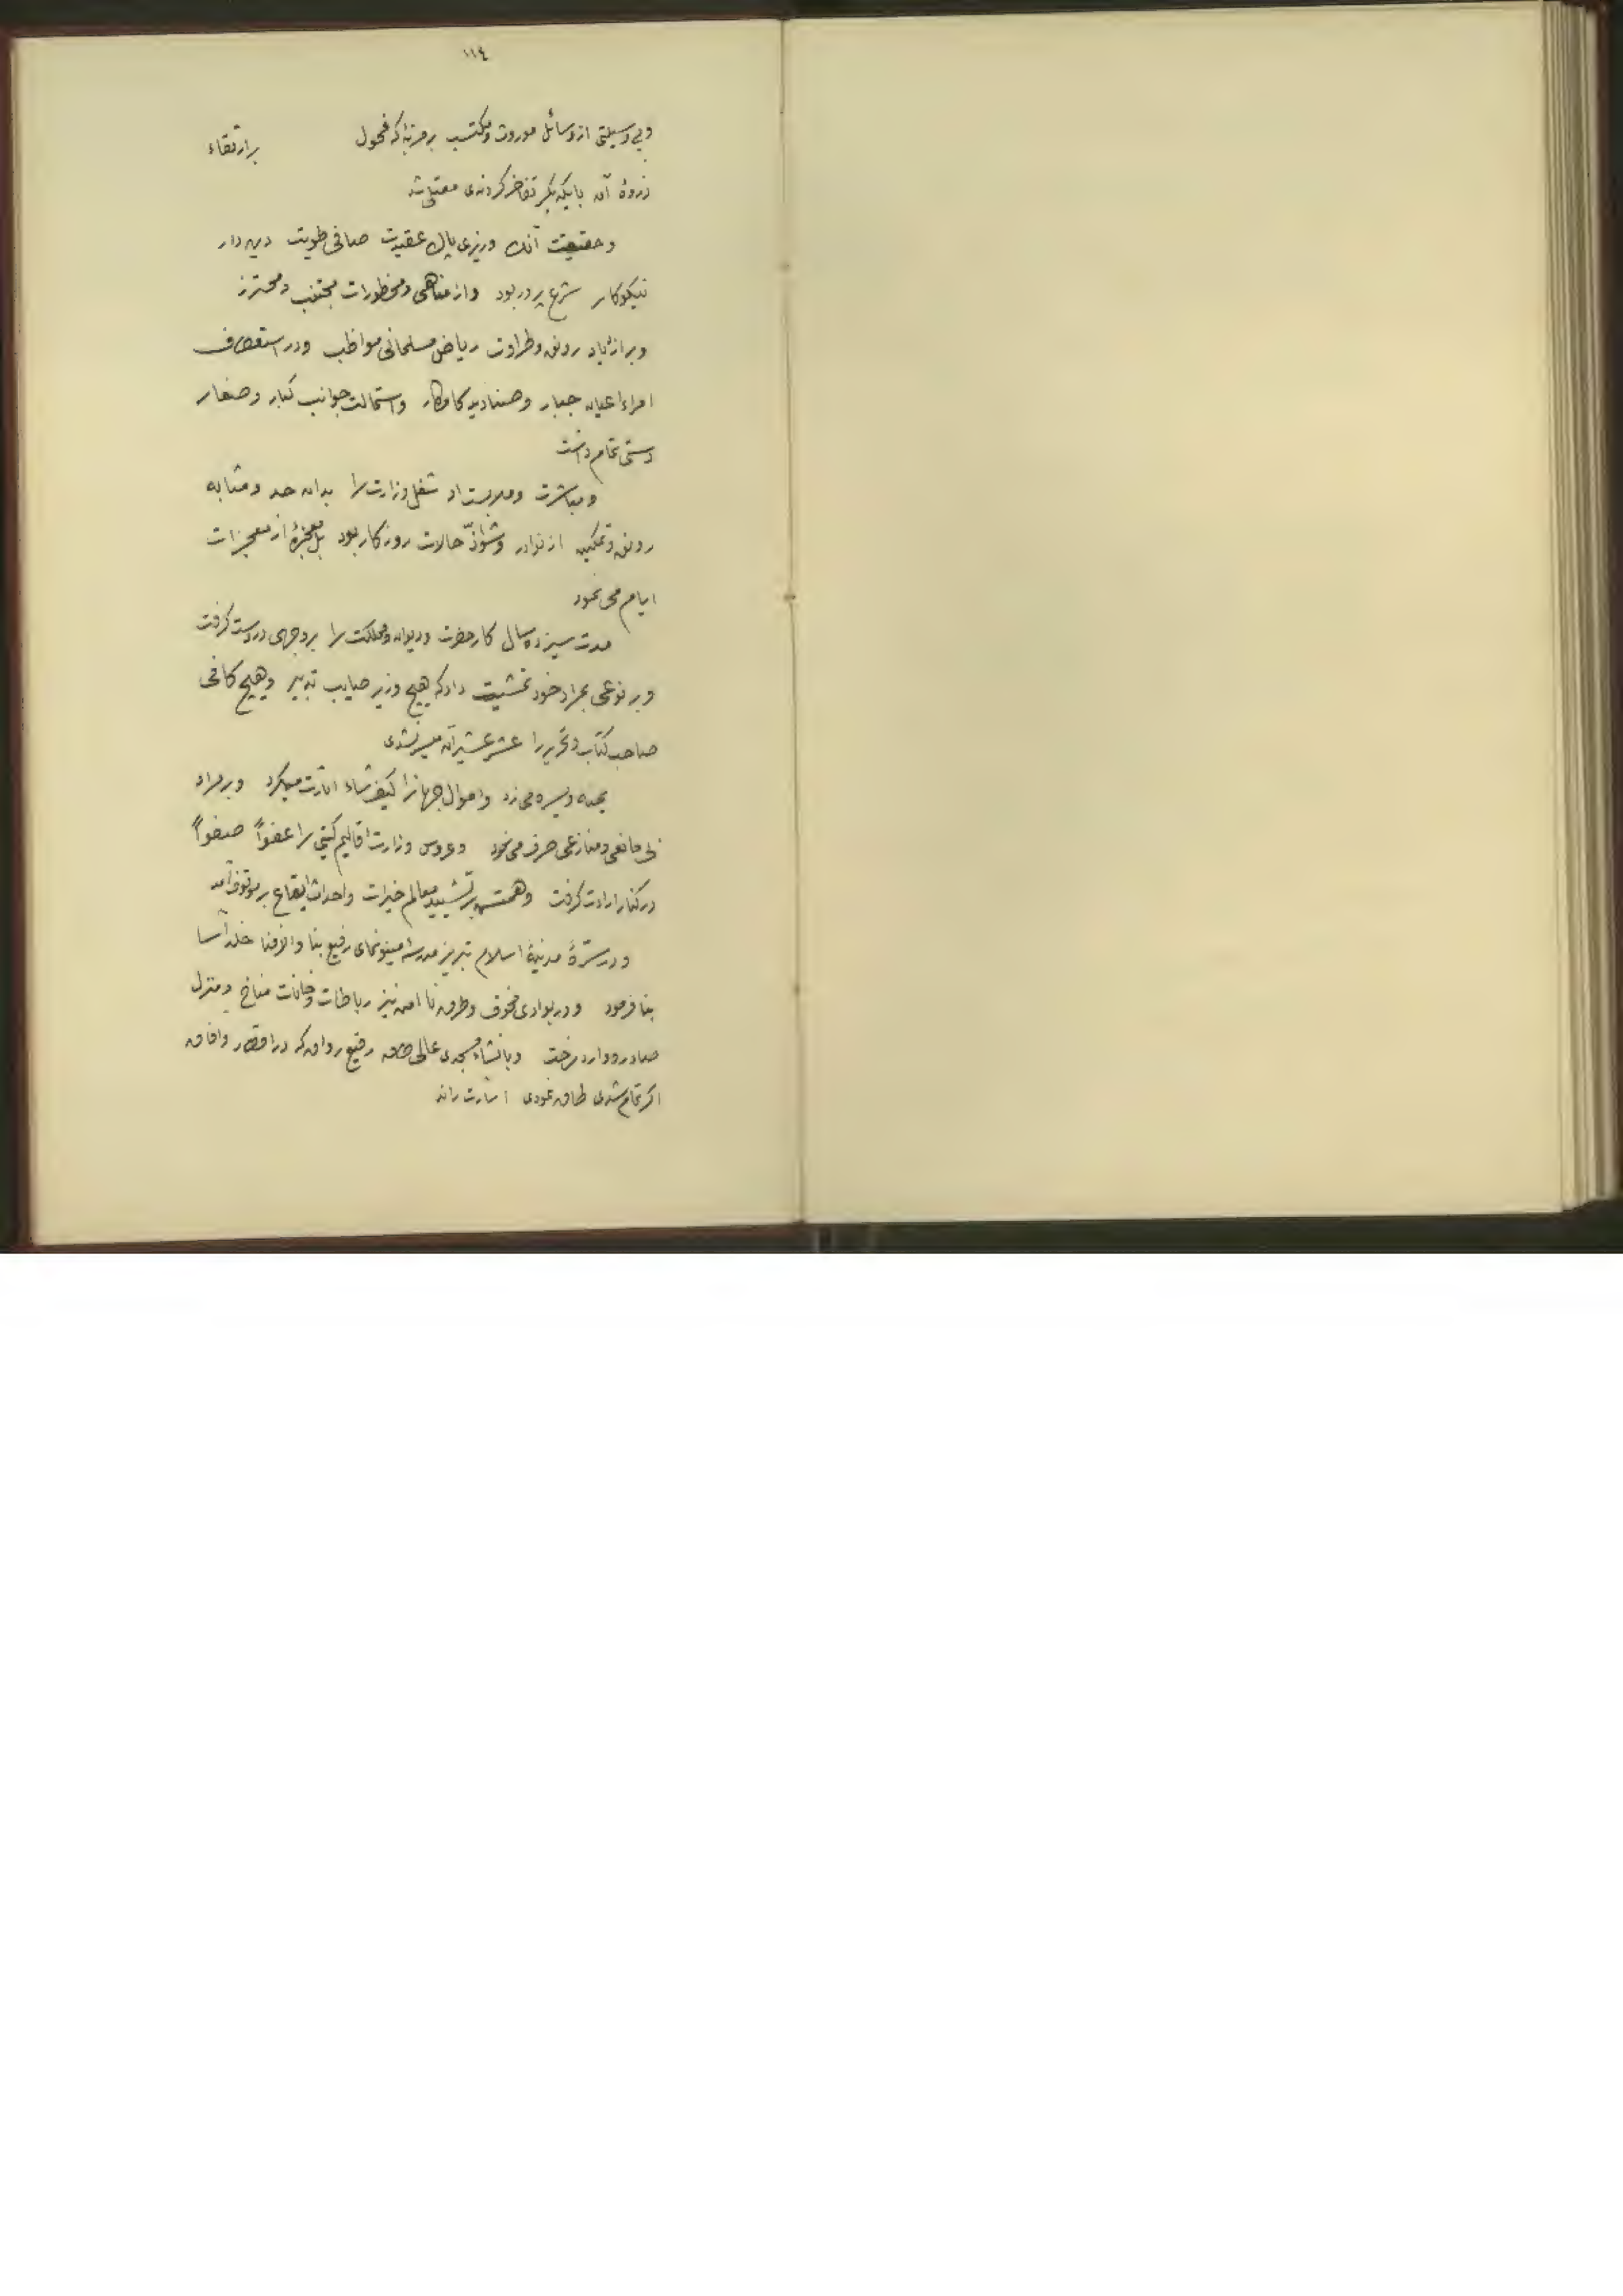 ١١٤
وبی وسیلتی از وسائل موروث ومکتسب بر مرتبۀ که فحول برارتقاء
ذروۀ آن بایکدیگر تفاخر کردندی معتلی شد
وحقیقت آنک وزیری پاک عقیدت صافی طویت دین دار
نیکوکار شرع پرور بود واز مناهی ومحظورات مجتنب ومحترز
وبر ازدیاد رونق وطراوت ریاض مسلمانی مواظب ودر استعطاف
امراء اعیان جبار وصنادید کامکار واستمالت جوانب کبار وصغار
دستی تمام داشت
ومباشرت وملابست او شغل وزارت را بدان حد ومثابه
رونق وتمکین از نوادر وشواذّ حالات روزکار بود بل معجزۀ از معجزات
ایام می نمود
مدت سیزده سال کار حضرت ودیوان ومملکت را بر وجهی در دست کرفت
وبر نوعی بمراد خود تمشیت داد که هیچ وزیر صایب تدبیر وهیچ کافی
صاحب کتاب وتحریر را عشر عشیر آن میسر نشدی
یمنه ویسره می زد واموال جهانرا کیف شاء اشارت میکرد وبر مراد
بی مانعی ومنازعی صرف می نمود وعروس وزارت اقالیم کیتی را عفواً صفواً
در کنار ارادت کرفت وهمتش بر تشیید معالم خیرات واحداث ابقاع بر موقوف آمد
ودر سترۀ مدینۀ اسلام تبریز مدرسۀ مینونمای رفیع بنا والافنا خلدآسا
بنا فرمود ودر بوادی مخوف وطرق نا امن نیز رباطات وخانات مناخ ومنزل
صادر ووارد ساخت وبانشاء مسجدی عالی طاق رفیع رواق که در اقطار وافاق
اکر تمام شدی طاق نمودی اشارت راند